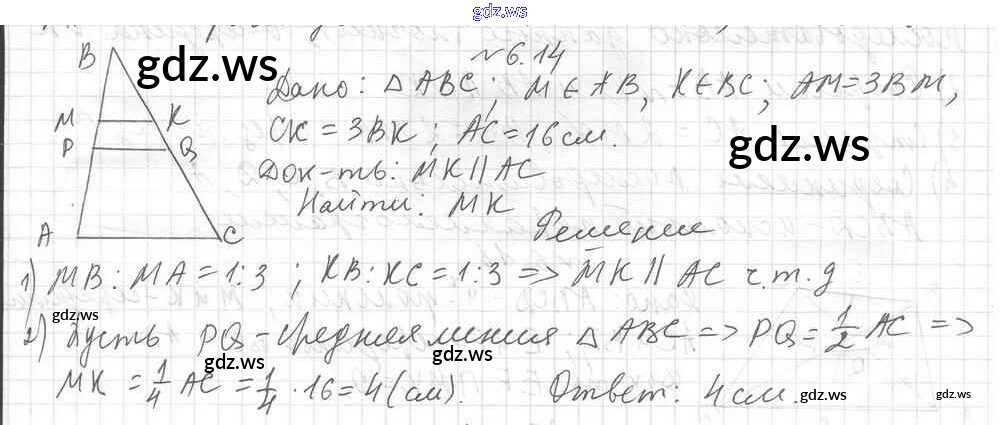 gdz.ws
№6.14
B
gdz.ws
Дано: △ABC; M∈AB, K∈BC; AM=3BM,
M K
CK=3BK; AC=16см.
gdz.ws
P Q
Док-ть: MK||AC
Найти: MK
A C
Решение
1) MB:MA=1:3; KB:KC=1:3 => MK||AC ч.т.д
gdz.ws
2) Пусть PQ-средняя линия △ABC. => PQ=1/2 AC =>
gdz.ws
gdz.ws
MK=1/4 AC=1/4·16=4(см). Ответ: 4см.
gdz.ws